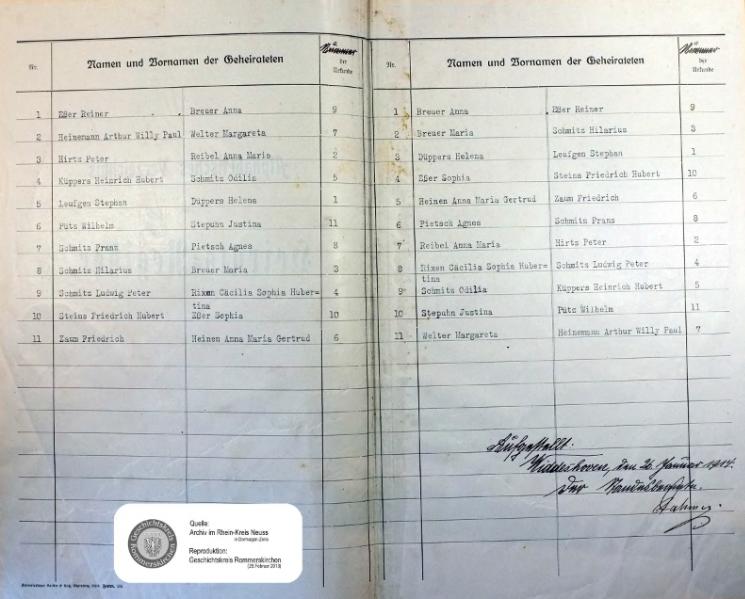 Nr. Namen und Vornamen der Geheirateten Nummer der Urkunde
1 Eßer Reiner Breuer Anna 9
2 Heinemann Arthur Willy Paul Welter Margareta 7
3 Hirts Peter Reibel Anna Maria 2
4 Küppers Heinrich Hubert Schmitz Odilia 5
5 Leufgen Stephan Düppers Helena 1
6 Püts Wilhelm Stepuhn Justina 11
7 Schmitz Franz Pietsch Agnes 8
8 Schmitz Hilarius Breuer Maria 3
9 Schmitz Ludwig Peter Rixen Cäcilia Sophia Huber= 4
tina
10 Steins Friedrich Hubert Eßer Sophia 10
11 Zaum Friedrich Heinen Anna Maria Gertrud 6
Nr. Namen und Vornamen der Geheirateten Nummer der Urkunde
1 Breuer Anna Eßer Reiner 9
2 Breuer Maria Schmitz Hilarius 3
3 Düppers Helena Leufgen Stephan 1
4 Eßer Sophia Steins Friedrich Hubert 10
5 Heinen Anna Maria Gertrud Zaum Friedrich 6
6 Pietsch Agnes Schmitz Franz 8
7 Reibel Anna Maria Hirts Peter 2
8 Rixen Cäcilia Sophia Huber= Schmitz Ludwig Peter 4
tina
9 Schmitz Odilia Küppers Heinrich Hubert 5
10 Stepuhn Justina Püts Wilhelm 11
11 Welter Margareta Heinemann Arthur Willy Paul 7
Aufgestellt:
Widdeshoven, den 26. Januar
Der Standesbeamte.
Geschichtskreis Rommerskirchen
Quelle:
Archiv im Rhein-Kreis Neuss
in Dormagen-Zons
Reproduktion:
Geschichtskreis Rommerskirchen